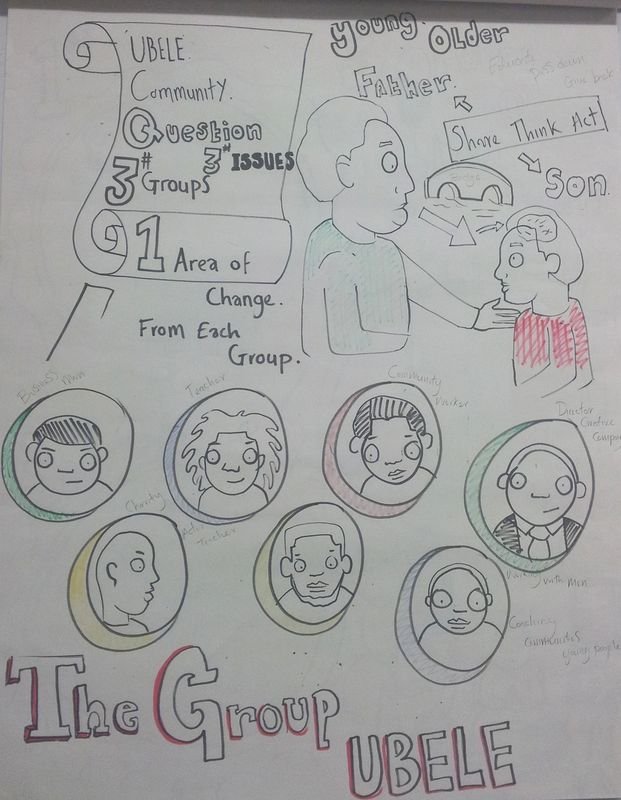 UBELE
Community.
Question
3# Groups 3# ISSUES
1 Area of
Change.
From Each
Group.
Young. Older
Father.
Pass down
Give back
Share Think Act
Bridge
Son.
Business Man
Teacher
Community
Worker
Director
Creative
Company
Charity
Actor
Teacher
Working with Men
Coaching
Communities
young people
The Group
UBELE